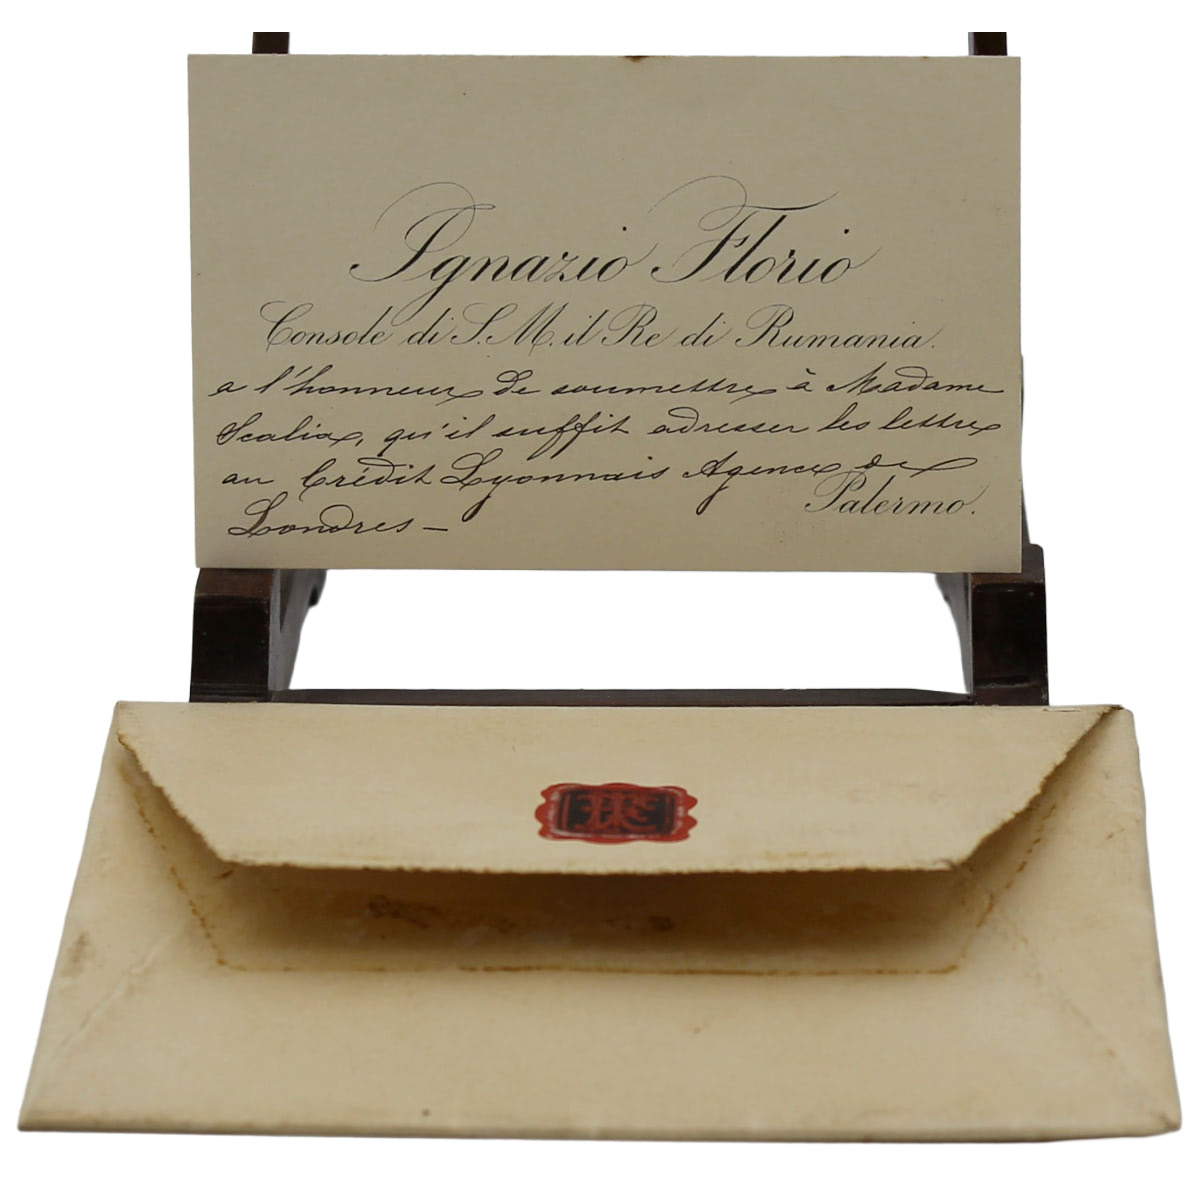 Ignazio Florio
Console di S. M. il Re di Rumania.
a l'honneur de soumettre à Madame
Scalia, qu'il suffit adresser les lettres
au Crédit Lyonnais Agence de
Palermo.
Londres —